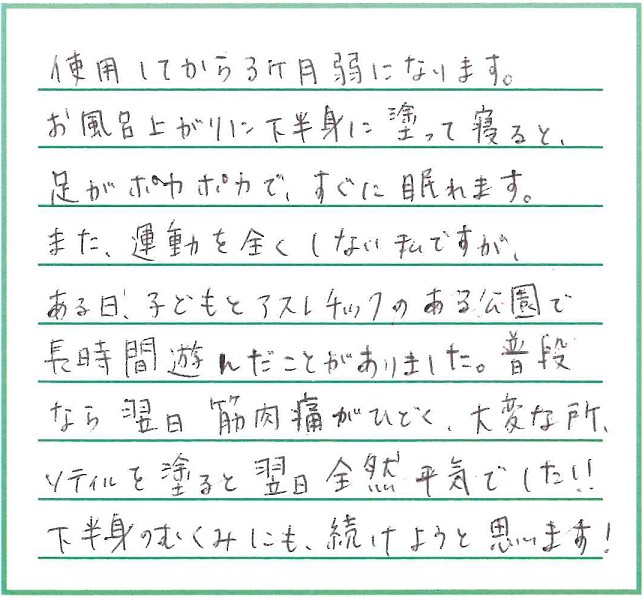 使用してから3ケ月弱になります。
お風呂上がりに下半身に塗って寝ると、
足がポカポカで、すぐに眠れます。
また、運動を全くしない私ですが、
ある日、子どもとアスレチックのある公園で
長時間遊んだことがありました。普段
なら翌日筋肉痛がひどく、大変な所、
ソティルを塗ると翌日全然平気でした!!
下半身のむくみにも、続けようと思います!